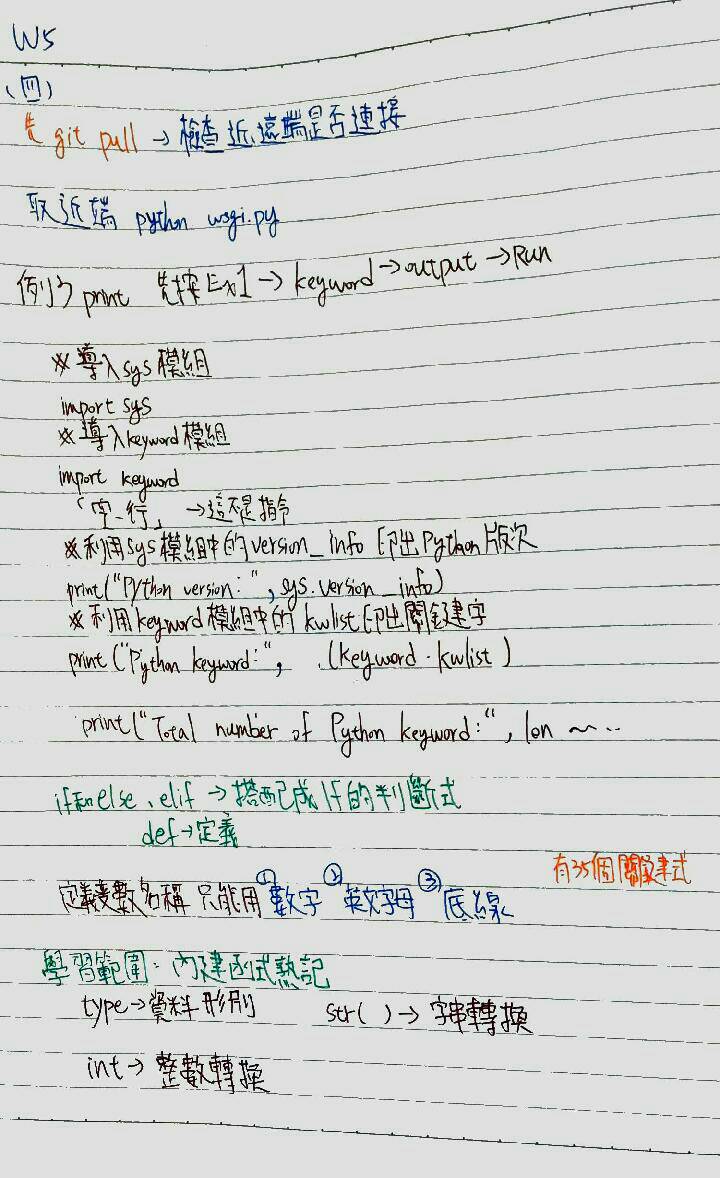 W5
(四)
先 git pull → 檢查近遠端是否連接
取近端 python wsgi.py
例的 print 先按 Ex1 → keyword → output → Run
※導入 sys 模組
import sys
※導入 keyword 模組
import keyword
「字行」 → 這不是指令
※利用 sys 模組中的 version_info 印出 Python 版次
print("Python version:", sys.version_info)
※利用 keyword 模組中的 kwlist 印出關鍵字
print("Python keyword:", (keyword.kwlist)
print("Total number of Python keyword:", len ~ ··
if和else、elif → 搭配成 if 的判斷式
def → 定義
有35個關鍵字式
定義變數名稱 只能用 ①數字 ②英文字母 ③底線
學習範圍: 內建函式熟記
type → 資料形別 str( ) → 字串轉換
int → 整數轉換